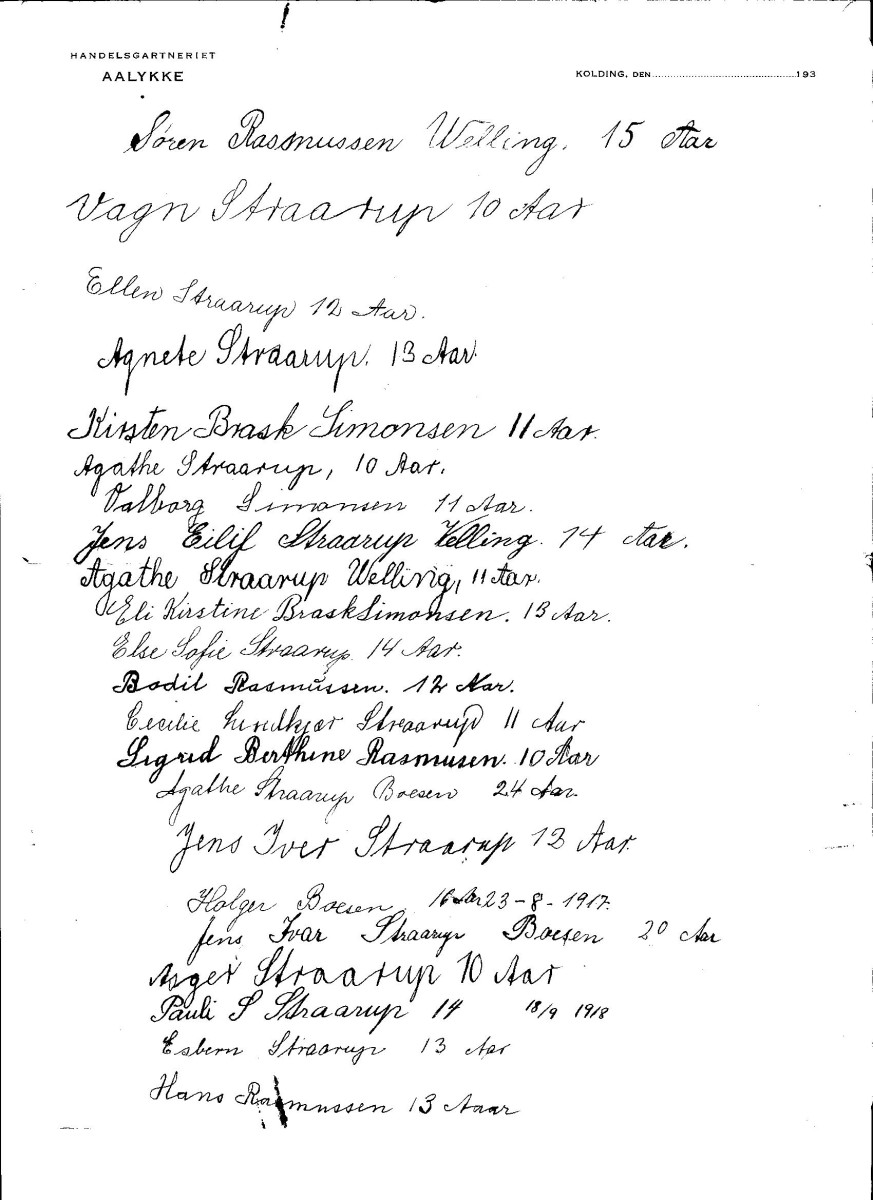 HANDELSGARTNERIET
AALYKKE
KOLDING, DEN 193
Søren Rasmussen Welling. 15 Aar
Vagn Straarup 10 Aar
Ellen Straarup 12 Aar.
Agnete Straarup. 13 Aar.
Kirsten Brask Simonsen 11 Aar.
Agathe Straarup, 10 Aar.
Valborg Simonsen 11 Aar.
Jens Eilif Straarup Velling. 14 Aar.
Agathe Straarup Welling, 11 Aar.
Eli Kirstine Brask Simonsen. 13 Aar.
Else Sofie Straarup. 14 Aar.
Bodil Rasmussen. 12 Aar.
Cecilie Lindkjær Straarup 11 Aar
Sigrid Berthine Rasmusen. 10 Aar
Agathe Straarup Boesen 24 Aar.
Jens Iver Straarup 12 Aar.
Holger Boesen 16 Aar 23-8-1917.
Jens Ivar Straarup Boesen 20 Aar
Asger Straarup 10 Aar
Pauli S Straarup 14 18/9 1918
Esbern Straarup 13 Aar
Hans Rasmussen 13 Aaar